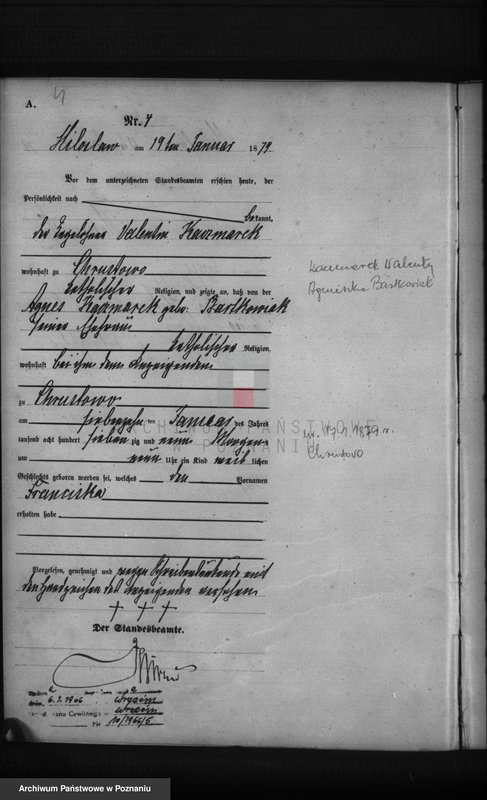 A. 4
Nr. 4
Miloslaw am 19ten Januar 1879
Vor dem unterzeichneten Standesbeamten erschien heute, der
Persönlichkeit nach
bekannt,
der Tagelöhner Valentin Kaczmarek
wohnhaft zu Chrustowo
katholischer Religion, und zeigte an, daß von der
Agnes Kaczmarek geb. Bartkowiak
seiner Ehefrau
katholischer Religion,
wohnhaft bei ihm dem Anzeigenden
zu Chrustowo
am siebenzehnten Januar des Jahres
tausend acht hundert siebenzig und neun Morgens
um neun Uhr ein Kind weiblichen
Geschlechts geboren worden sei, welches den Vornamen
Franciska
erhalten habe
Vorgelesen, genehmigt und wegen Schreibensunkunde mit
den Handzeichen des Anzeigenden versehen
+ + +
Der Standesbeamte.
6.2.1966 Września
Urzędu Stanu Cywilnego Września
Nr 10/1966/5
Kaczmarek Walenty
Agnieszka Bartkowiak
ur. 17.1.1879 r.
Chrustowo
ARCHIWUM PAŃSTWOWE
W POZNANIU
Archiwum Państwowe w Poznaniu